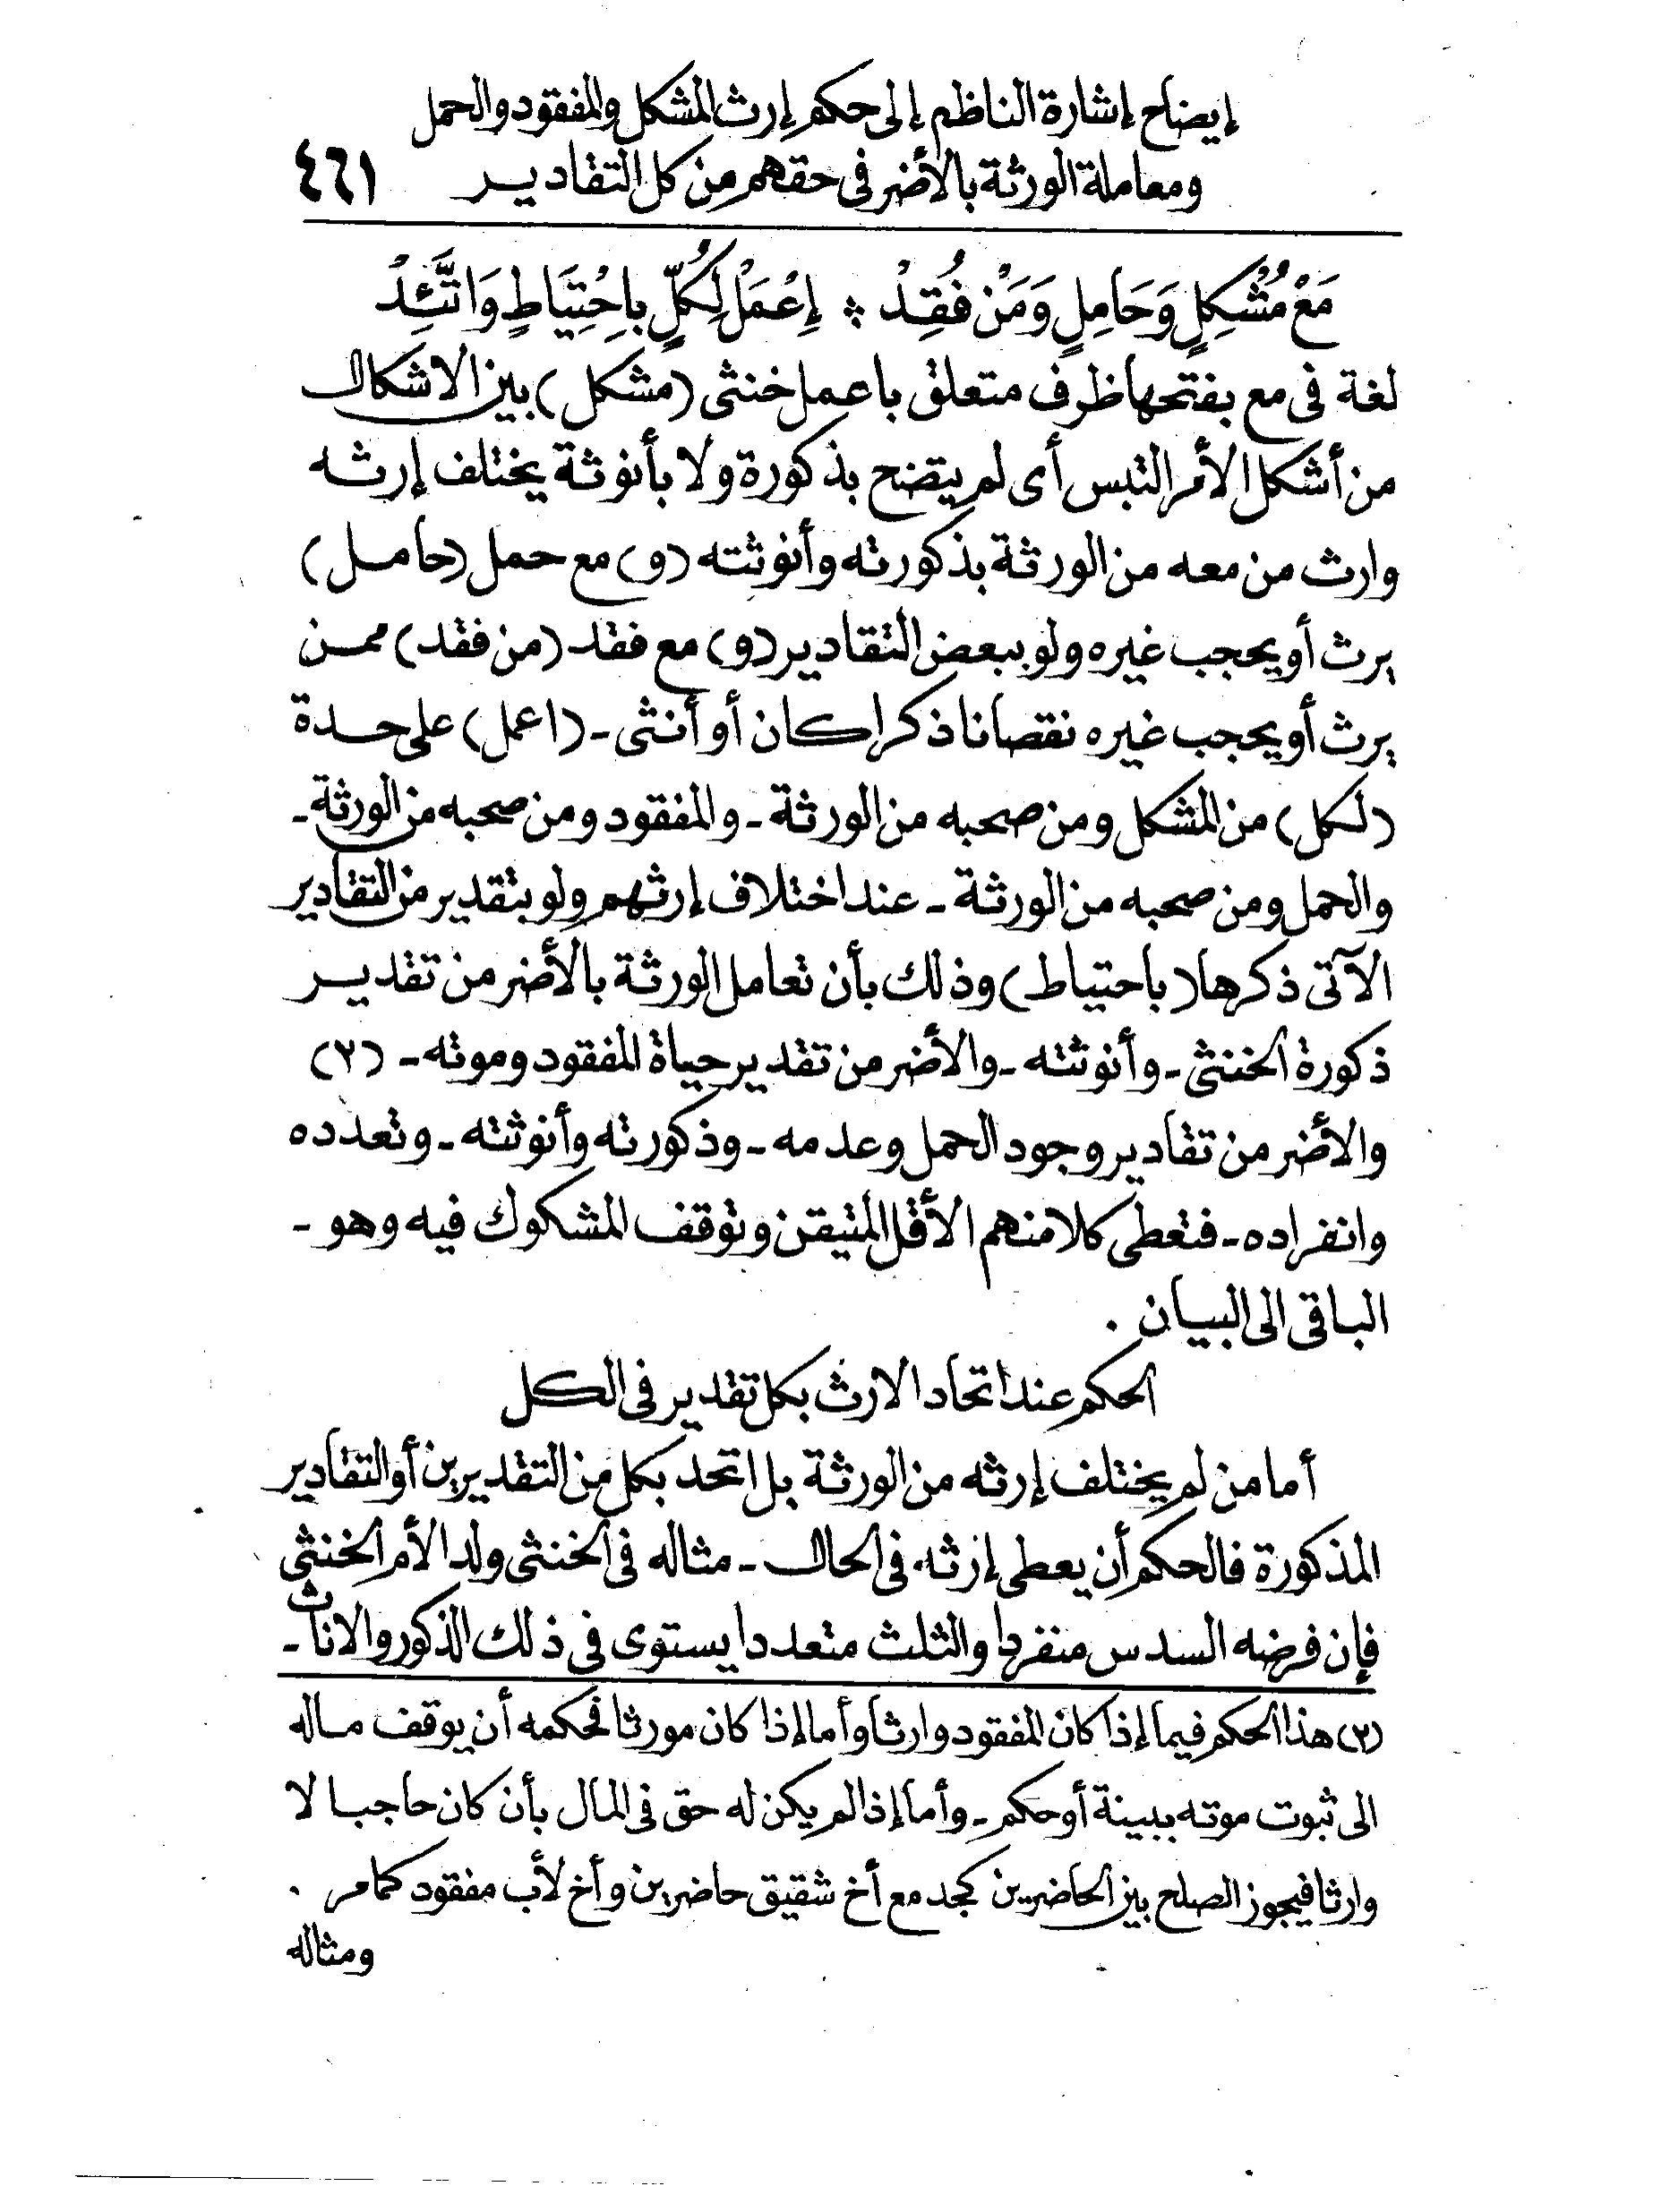 إيضاح إشارة الناظم إلى حكم إرث المشكل والمفقود والحمل
ومعاملة الورثة بالأضر فى حقهم من كل التقادير ٤٦١
مَعْ مُشْكِلٍ وَحَامِلٍ وَمَنْ فُقِدْ * إِعْمَلْ لِكُلٍّ بِاحْتِيَاطٍ وَاتَّئِدْ
لغة فى مع بفتحها ظرف متعلق باعمل خنثى (مشكل) بين الاشكال
من أشكل الأمر التبس أى لم يتضح بذكورة ولا بأنوثة يختلف إرثه
وارث من معه من الورثة بذكورته وأنوثته (و) مع حمل (حامل)
يرث أو يحجب غيره ولو ببعض التقادير (و) مع فقد (من فقد) ممن
يرث أو يحجب غيره نقصانا ذكرا كان أو أنثى - (اعمل) على حدة
(لكل) من المشكل ومن صحبه من الورثة - والمفقود ومن صحبه من الورثة -
والحمل ومن صحبه من الورثة - عند اختلاف إرثهم ولو بتقدير من التقادير
الآتى ذكرها (باحتياط) وذلك بأن تعامل الورثة بالأضر من تقدير
ذكورة الخنثى - وأنوثته - والأضر من تقدير حياة المفقود وموته - (٢)
والأضر من تقادير وجود الحمل وعدمه - وذكورته وأنوثته - وتعدده
وانفراده - فتعطى كلا منهم الأقل المتيقن وتوقف المشكوك فيه وهو -
الباقى الى البيان .
الحكم عند اتحاد الارث بكل تقدير فى الكل
أما من لم يختلف إرثه من الورثة بل اتحد بكل من التقديرين أو التقادير
المذكورة فالحكم أن يعطى إرثه فى الحال - مثاله فى الخنثى ولد الأم الخنثى
فإن فرضه السدس منفردا والثلث متعددا يستوى فى ذلك الذكور والاناث -
(٢) هذا الحكم فيما إذا كان المفقود وارثا وأما إذا كان مورثا فحكمه أن يوقف ماله
الى ثبوت موته ببينة أو حكم - وأما إذا لم يكن له حق فى المال بأن كان حاجبا لا
وارثا فيجوز الصلح بين الحاضرين كجد مع أخ شقيق حاضرين وأخ لأب مفقود كما مر .
ومثاله